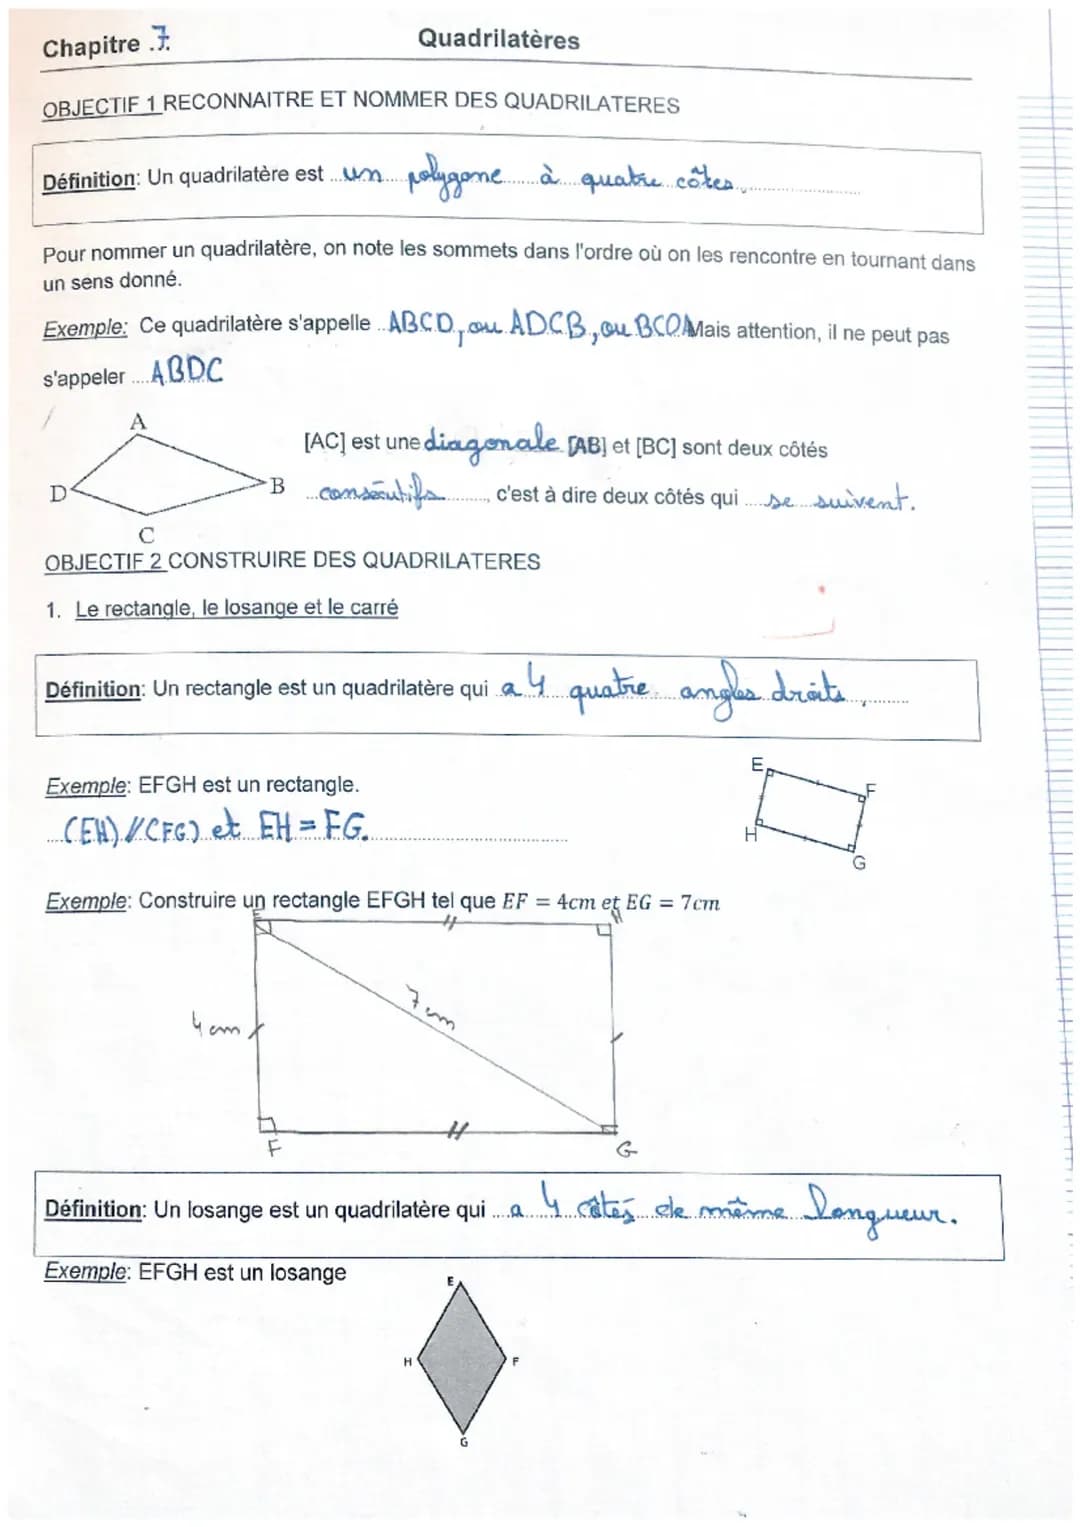 Chapitre .7.
Quadrilatères
OBJECTIF 1 RECONNAITRE ET NOMMER DES QUADRILATERES
Définition: Un quadrilatère est ..un polygone à quatre côtés.
Pour nommer un quadrilatère, on note les sommets dans l'ordre où on les rencontre en tournant dans
un sens donné.
Exemple: Ce quadrilatère s'appelle ..ABCD, ou ADCB, ou BCDA Mais attention, il ne peut pas
s'appeler .... ABDC
A
D
B
C
[AC] est une diagonale [AB] et [BC] sont deux côtés
consécutifs ........, c'est à dire deux côtés qui ....se suivent.
OBJECTIF 2 CONSTRUIRE DES QUADRILATERES
1. Le rectangle, le losange et le carré
Définition: Un rectangle est un quadrilatère qui a 4 quatre angles droits
Exemple: EFGH est un rectangle.
(EH)//(FG) et EH = FG.
E
F
H
G
Exemple: Construire un rectangle EFGH tel que EF = 4cm et EG = 7cm
E
H
7 cm
4 cm
F
G
Définition: Un losange est un quadrilatère qui ... a 4 côtés de même longueur.
Exemple: EFGH est un losange
E
H
F
G